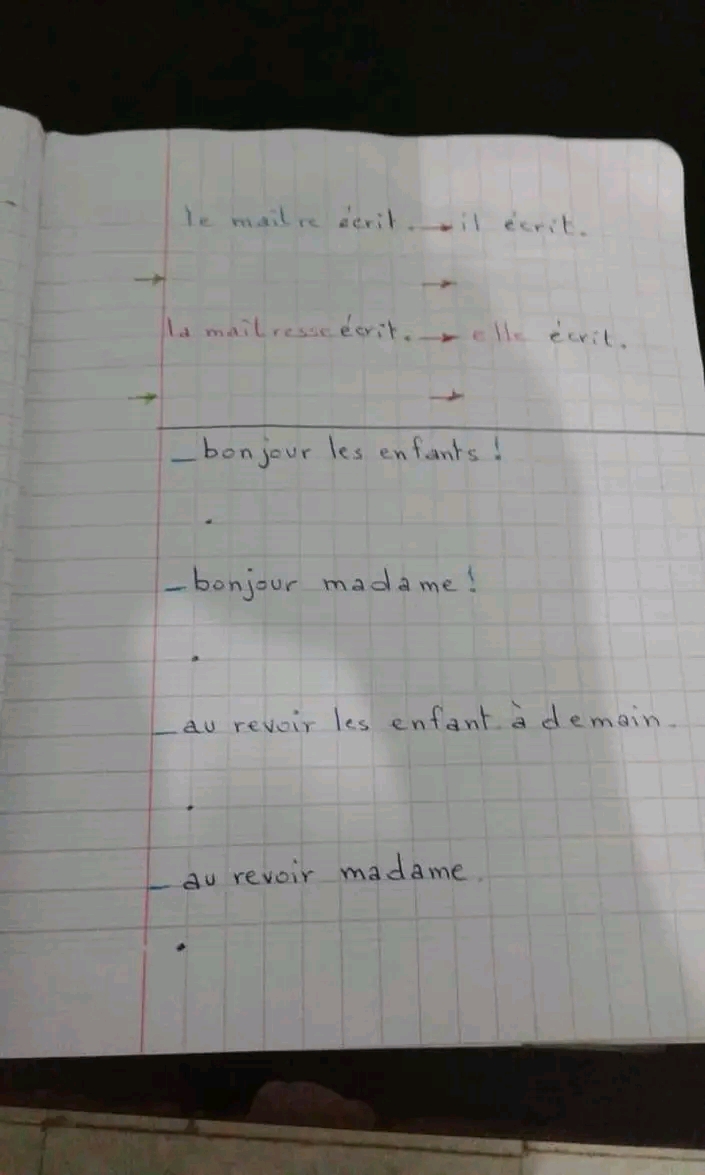 le maitre écrit. → il écrit.
→ →
la maitresse écrit. → elle écrit.
→ →
_ bonjour les enfants !
.
_ bonjour madame !
.
_ au revoir les enfant à demain.
.
_ au revoir madame.
.